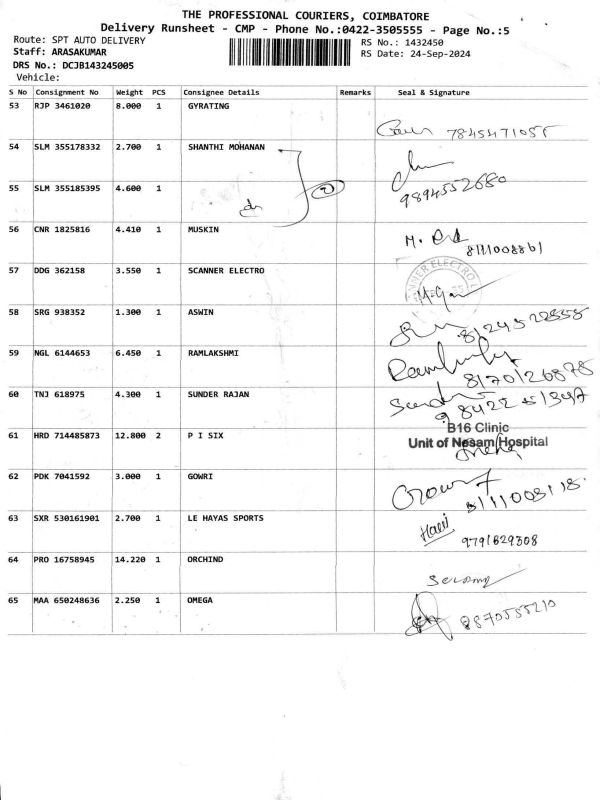 THE PROFESSIONAL COURIERS, COIMBATORE
Delivery Runsheet - CMP - Phone No.:0422-3505555 - Page No.:5
Route: SPT AUTO DELIVERY
RS No.: 1432450
Staff: ARASAKUMAR
RS Date: 24-Sep-2024
DRS No.: DCJB143245005
Vehicle:
S No Consignment No Weight PCS Consignee Details Remarks Seal & Signature
53 RJP 3461020 8.000 1 GYRATING
7845471055
54 SLM 355178332 2.700 1 SHANTHI MOHANAN
9894552680
55 SLM 355185395 4.600 1
2
56 CNR 1825816 4.410 1 MUSKIN
8111008861
57 DDG 362158 3.550 1 SCANNER ELECTRO
58 SRG 938352 1.300 1 ASWIN
8124522858
59 NGL 6144653 6.450 1 RAMLAKSHMI
8170126878
60 TNJ 618975 4.300 1 SUNDER RAJAN
B16 Clinic
61 HRD 714485873 12.800 2 P I SIX
Unit of Nesam Hospital
62 PDK 7041592 3.000 1 GOWRI
Gowri
63 SXR 530161901 2.700 1 LE HAYAS SPORTS
9791629308
64 PRO 16758945 14.220 1 ORCHIND
65 MAA 650248636 2.250 1 OMEGA
8870555210